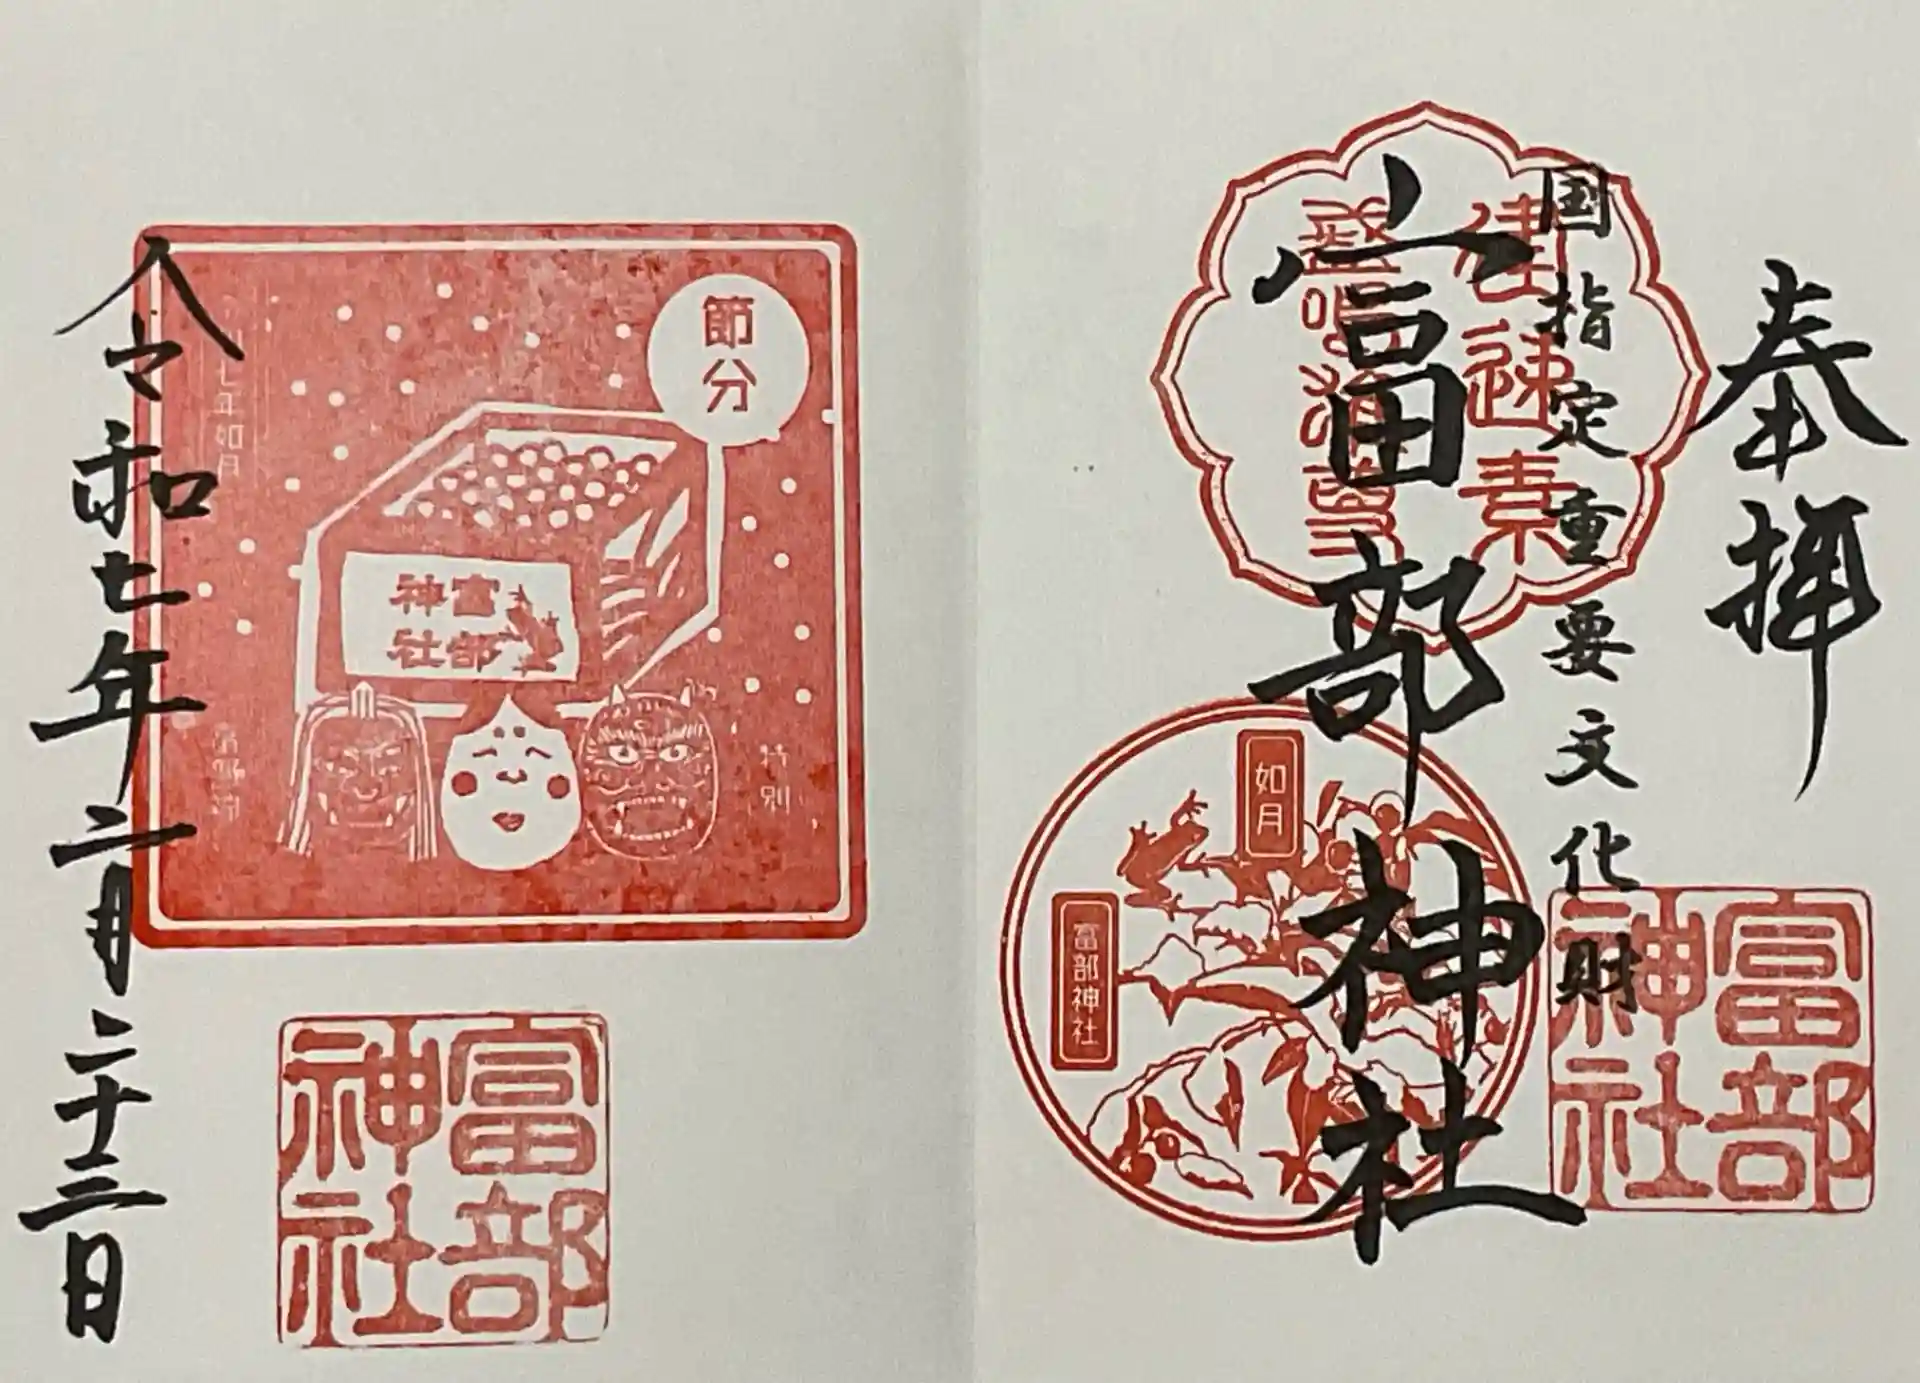 奉拝
国指定重要文化財
富部神社
建速素
如月
富部神社
富部神社
節分
富部神社
特別
七年如月
令和七年二月二十三日
富部神社